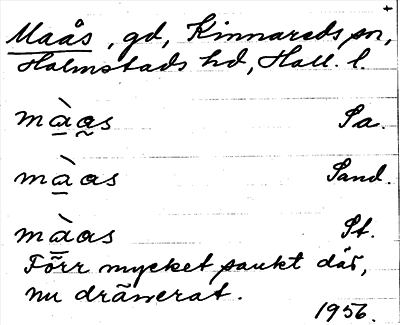 Maås, gd, Kinnareds sn,
Halmstads hd, Hall. l.
màas Sa.
màas Sand.
màas St.
Förr mycket sankt där,
nu dränerat.
1956.